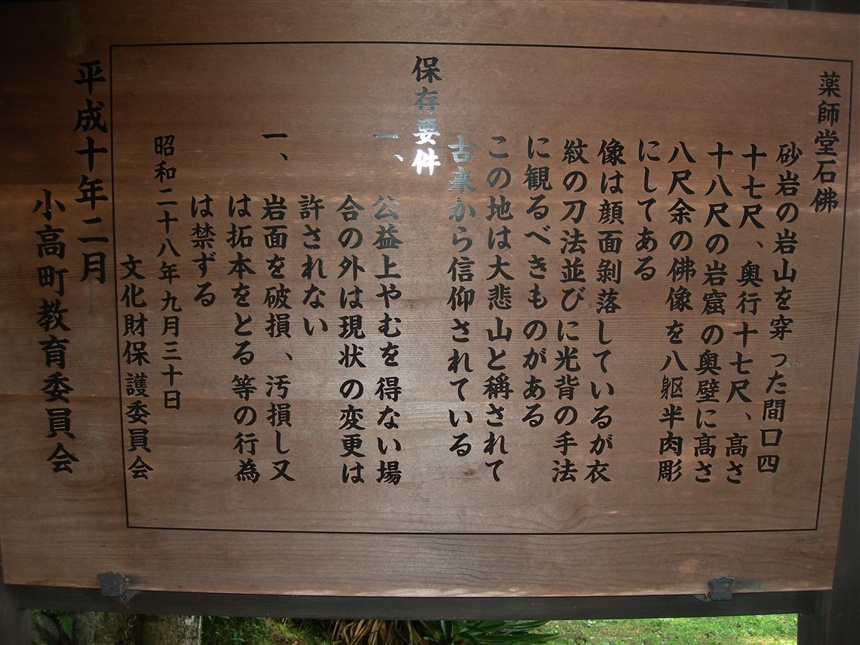 薬師堂石佛
砂岩の岩山を穿った間口四
十七尺、奥行十七尺、高さ
十八尺の岩窟の奥壁に高さ
八尺余の佛像を八躯半肉彫
にしてある
像は顔面剝落しているが衣
紋の刀法並びに光背の手法
に観るべきものがある
この地は大悲山と稱されて
古来から信仰されている
保存要件
一、公益上やむを得ない場
合の外は現状の変更は
許されない
一、岩面を破損、汚損し又
は拓本をとる等の行為
は禁ずる
昭和二十八年九月三十日
文化財保護委員会
平成十年二月
小高町教育委員会